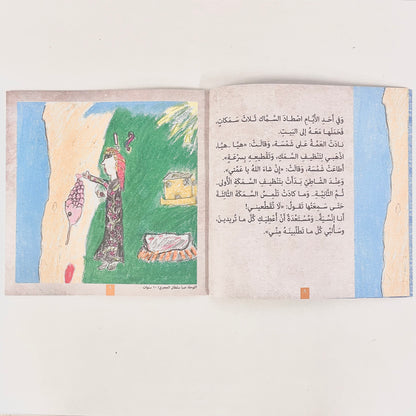 وَفِي أَحَدِ الْأَيَّامِ اصْطَادَ السَّمَّاكُ ثَلَاثَ سَمَكَاتٍ،
فَحَمَلَهَا مَعَهُ إِلَى الْبَيْتِ.
نَادَتِ الْعَمَّةُ عَلَى شَمْسَة، وَقَالَتْ: «هَيَّا.. هَيَّا..
اذْهَبِي لِتَنْظِيفِ السَّمَكِ، وَتَقْطِيعِهِ بِسُرْعَةٍ».
أَطَاعَتْ شَمْسَة، وَقَالَتْ: «إِنْ شَاءَ اللهُ يَا عَمَّتِي».
وَعِنْدَ الشَّاطِئِ بَدَأَتْ بِتَنْظِيفِ السَّمَكَةِ الْأُولَى،
ثُمَّ الثَّانِيَةِ. وَمَا كَادَتْ تَلْمِسُ السَّمَكَةَ الثَّالِثَةَ
حَتَّى سَمِعَتْهَا تَقُولُ: «لَا تُقَطِّعِينِي!
أَنَا إِنْسِيَّةٌ، وَمُسْتَعِدَّةٌ أَنْ أُعْطِيَكِ كُلَّ مَا تُرِيدِينَ،
وَسَأُلَبِّي كُلَّ مَا تَطْلُبِينَهُ مِنِّي».
سنوات